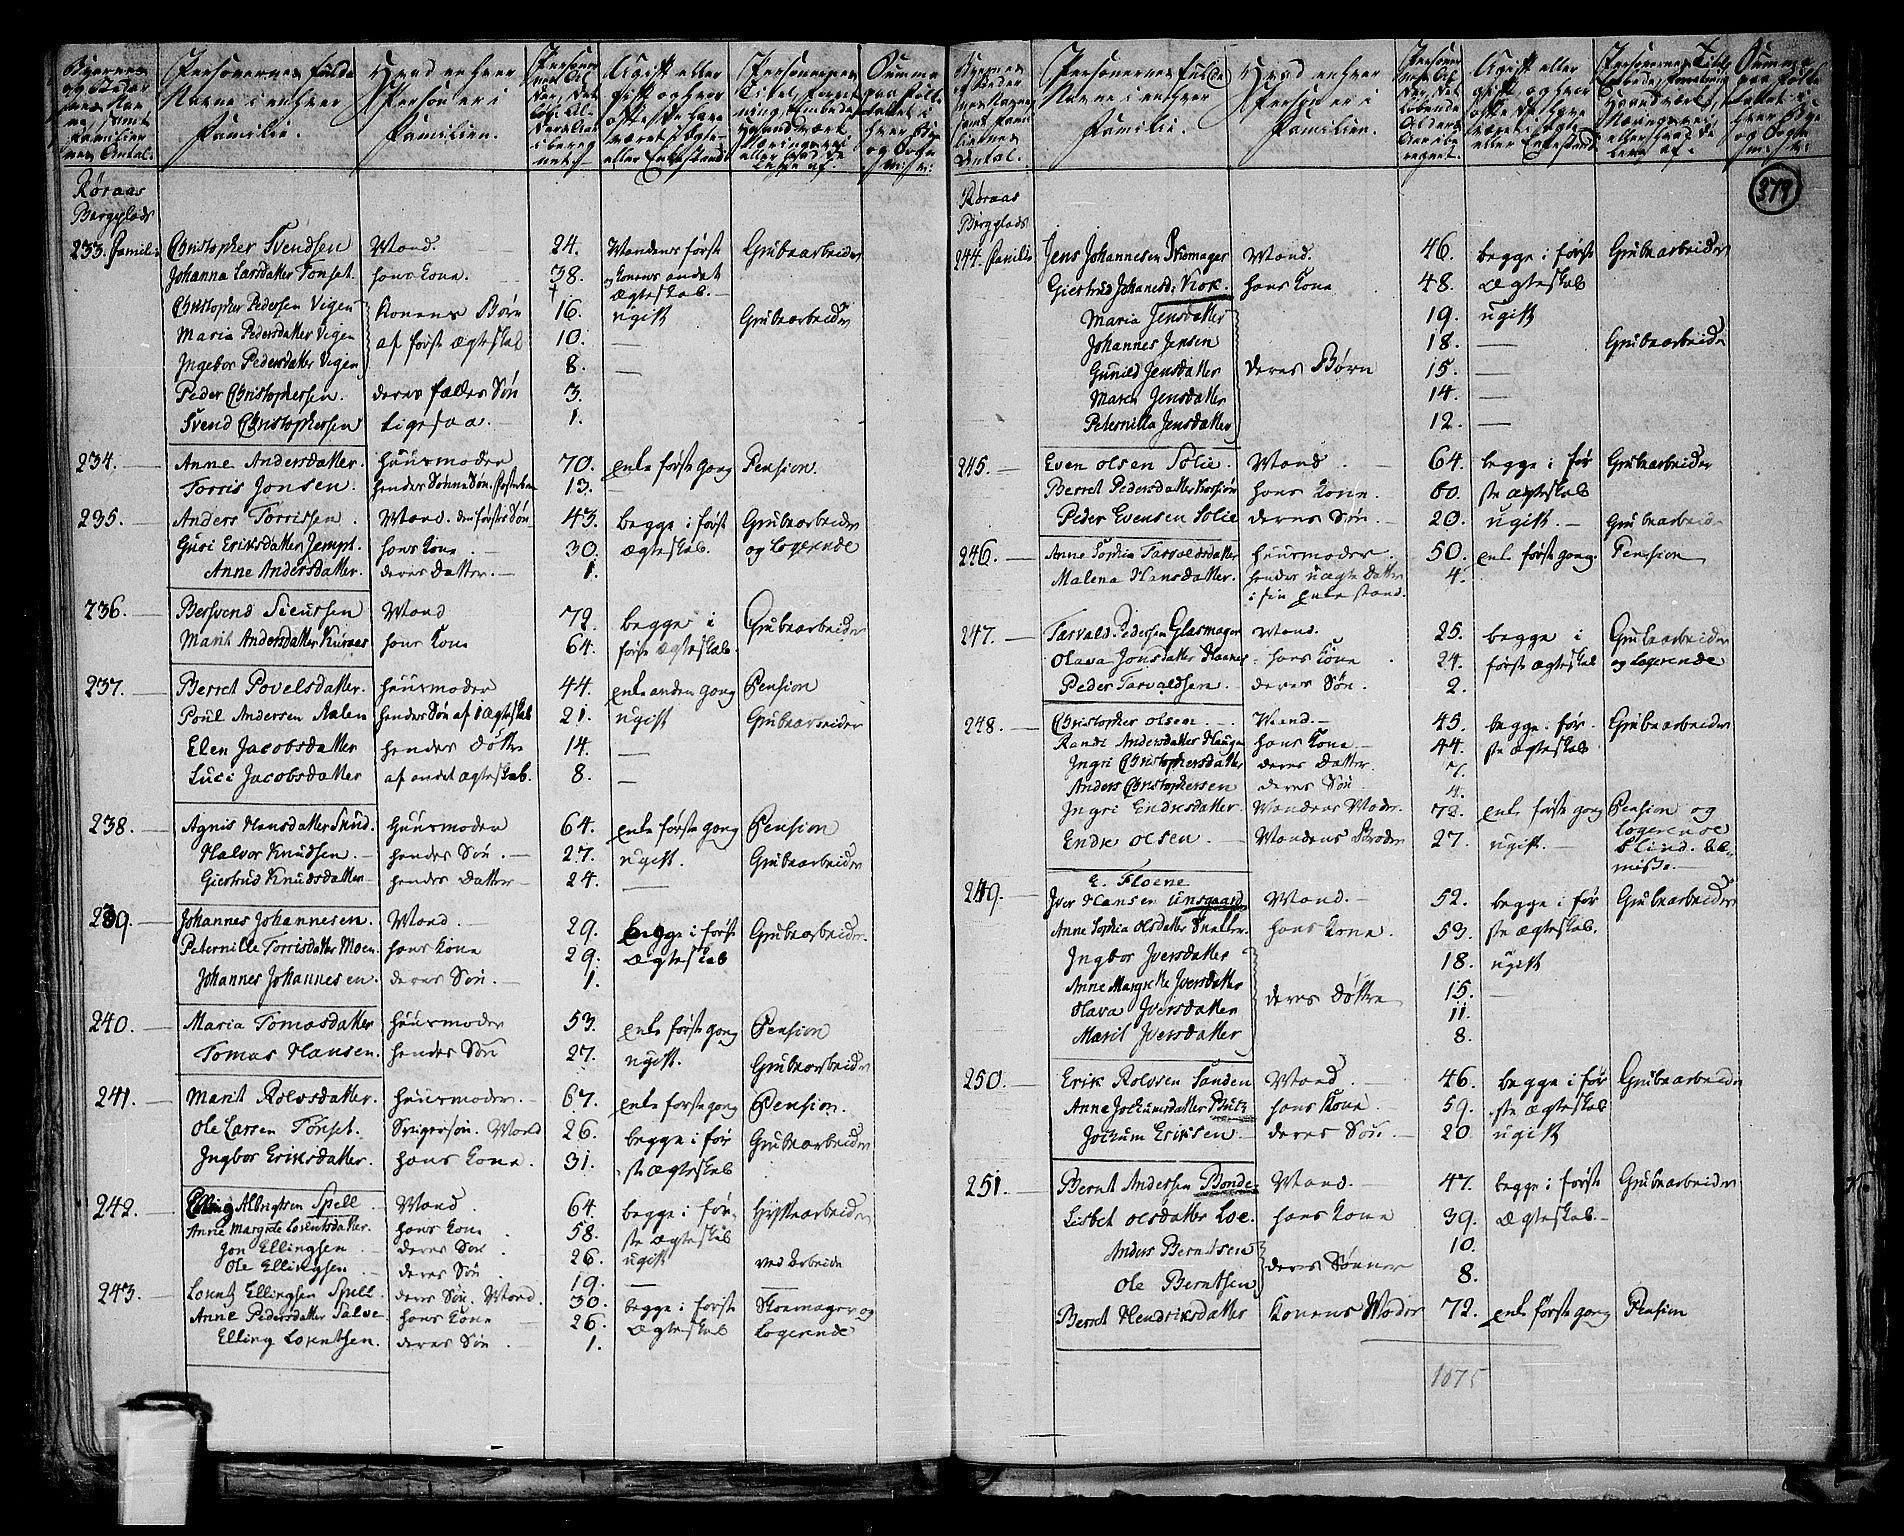 Byernes og Stædernes Navne, samt Familiernes Antal.
Personernes fulde Navne i enhver Familie.
Hvad enhver Person er i Familien.
Personernes Alder, det løbende Alders Aar iberegnet.
Ugift eller gift og hvor ofte de have været i Ægte- eller Enkestand
Personernes Titel, Embede, Haandværk, Næringsvei eller hvad de leve af.
Summa paa Folketallet i hver Bye og Sogn
Røraas
Bergplads
233. Familie Christopher Svendsen Mand. 24. Mandens første Grubearbeider
Johanna Larsdatter Tonset. hans Kone. 38. og Konens andet
Ægteskab.
Christopher Pedersen Vigen Konens Børn 16. ugift Grubearbeider
Maria Pedersdatter Vigen af første Ægteskab 10. —
Ingebor Pedersdatter Vigen 8. —
Peder Christophersen. deres fælles Søn 3.
Svend Christophersen ligesaa. 1.
234. Anne Andersdatter. Huusmoder 70. Enke første gang Pension
Torris Jonsen. hendes Sønne Søn. 13. —
235. Anders Torrissen. Mand. den førstes Søn 43. begge i første Grubearbeider
Guri Eriksdatter Jempt. hans Kone. 30. Ægteskab. og Logerende
Anne Andersdatter. deres Datter. 1.
236. Bersvend Siurssen Mand 72. begge i Grubearbeider
Marit Andersdatter Kuraas hans Kone 64. første Ægteskab.
237. Berret Povelsdatter. Huusmoder 44. Enke anden gang Pension
Poul Andersen Aalen hendes Søn af 1 Ægteskab 21. ugift Grubearbeider
Elen Jacobsdatter hendes Døttre 14. —
Luci Jacobsdatter af andet Ægteskab. 8. —
238. Agnis Hansdatter Huusmoder 64. Enke første gang Pension
Halvor Knudsen. hendes Søn. 27. ugift. Grubearbeider
Giertrud Knudsdatter hendes Datter 24. —
239. Johannes Johannesen. Mand. 29. begge i første Grubearbeider.
Peternille Torrisdatter Moen hans Kone 29. Ægteskab
Johannes Johannesen. deres Søn. 1.
240. Maria Tomasdatter Huusmoder 53. Enke første gang Pension
Tomas Hansen. hendes Søn 27. ugift. Grubearbeider
241. Marit Rolvsdatter. Huusmoder. 67. Enke første gang Pension.
Ole Larsen Tønset. Svigersøn. Mand 26. begge i før Grubearbeider
Ingbor Eriksdatter. hans Kone. 31. ste Ægteskab
242. Elling Albrigtsen Spell Mand. 64. begge i før Hyttearbeider
Anne Margrete Lorentsdatter. hans Kone 58. ste Ægteskab
Jon Ellingsen deres Søn 26. ugift ved Arbeide
Ole Ellingsen deres Søn 19. —
243. Lorentz Ellingsen Spell deres Søn. Mand. 30. begge i første Skoemager og
Anne Pedersdatter Salve hans Kone 26. Ægteskab Logerende
Elling Lorentsen. deres Søn 1.
Byernes og Stædernes Navne samt Familiernes Antal.
Personernes fulde Navne i enhver Familie.
Hvad enhver Person er i Familien.
Personernes Alder, det løbende Alders Aar iberegnet.
Ugift eller gift og hvor ofte de have været i Ægte eller Enkestand
Personernes Titel, Embede, Forretning, Haandværk, Næringsvei eller hvad de leve af.
Summa paa Folketallet i hver Bye og Sogn
379
Røraas
Bergplads
244. Familie Jens Johannesen Skomager Mand. 46. begge i første Grubearbeider
Giertrud Johanesd: Krok. hans Kone 48. Ægteskab
Maria Jensdatter 19. ugift
Johannes Jensen 18. — Grubearbeider
Gunild Jensdatter deres Børn 15. —
Maren Jensdatter 14. —
Peternilla Jensdatter 12. —
245. Even Olsen Solie. Mand. 64. begge i før Grubearbeider
Berret Pedersdatter hans Kone. 60. ste Ægteskab
Peder Evensen Solie deres Søn. 20. ugift. Grubearbeider
246. Anne Sophia Tarvaldsdatter Huusmoder. 50. Enke første gang. Pension
Malena Hansdatter. hendes uægte Datter 4.
i sin Enkestand.
247. Tarvald Pedersen Glasmager Mand. 25. begge i Grubearbeider
Olava Jonsdatter Haanes hans Kone 24. første Ægteskab og Logerende
Peder Tarvaldsen. deres Søn. 2.
248. Christopher Olsen. Mand. 45. begge i før Grubearbeider
Randi Andersdatter Haugen hans Kone 44. ste Ægteskab
Ingri Christophersdatter deres Datter. 7.
Anders Christophersen deres Søn 4.
Ingri Endresdatter. Mandens Moder. 72. Enke første gang Pension og
Endre Olsen. Mandens Broder 27. ugift. Logerende
blind. Al-
misse.
E. Floene
249. Iver Hansen Unsgaard Mand. 52. begge i før Grubearbeider
Anne Sophia Olsdatter Sneller. hans Kone. 53. ste Ægteskab.
Ingbor Iversdatter 18. ugift
Anne Margrette Iversdatter deres Døttre 15. —
Olava Iversdatter 11.
Marit Iversdatter 8.
250. Erik Rolvsen Sanden Mand. 46. begge i før Grubearbeider
Anne Jochumsdatter hans Kone. 59. ste Ægteskab
Jochum Eriksen. deres Søn. 20. ugift
251. Bernt Andersen Bonde. Mand. 47. begge i første Grubearbeider
Lisbet Olsdatter Loe. hans Kone 39. Ægteskab.
Anders Berntsen deres Sønner 10.
Ole Berntsen 8.
Berret Hendriksdatter Konens Moder 72. Enke første gang Pension
1075